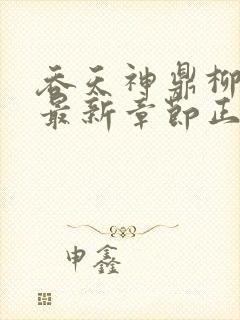 吞天神鼎柳
最新章节正
申鑫